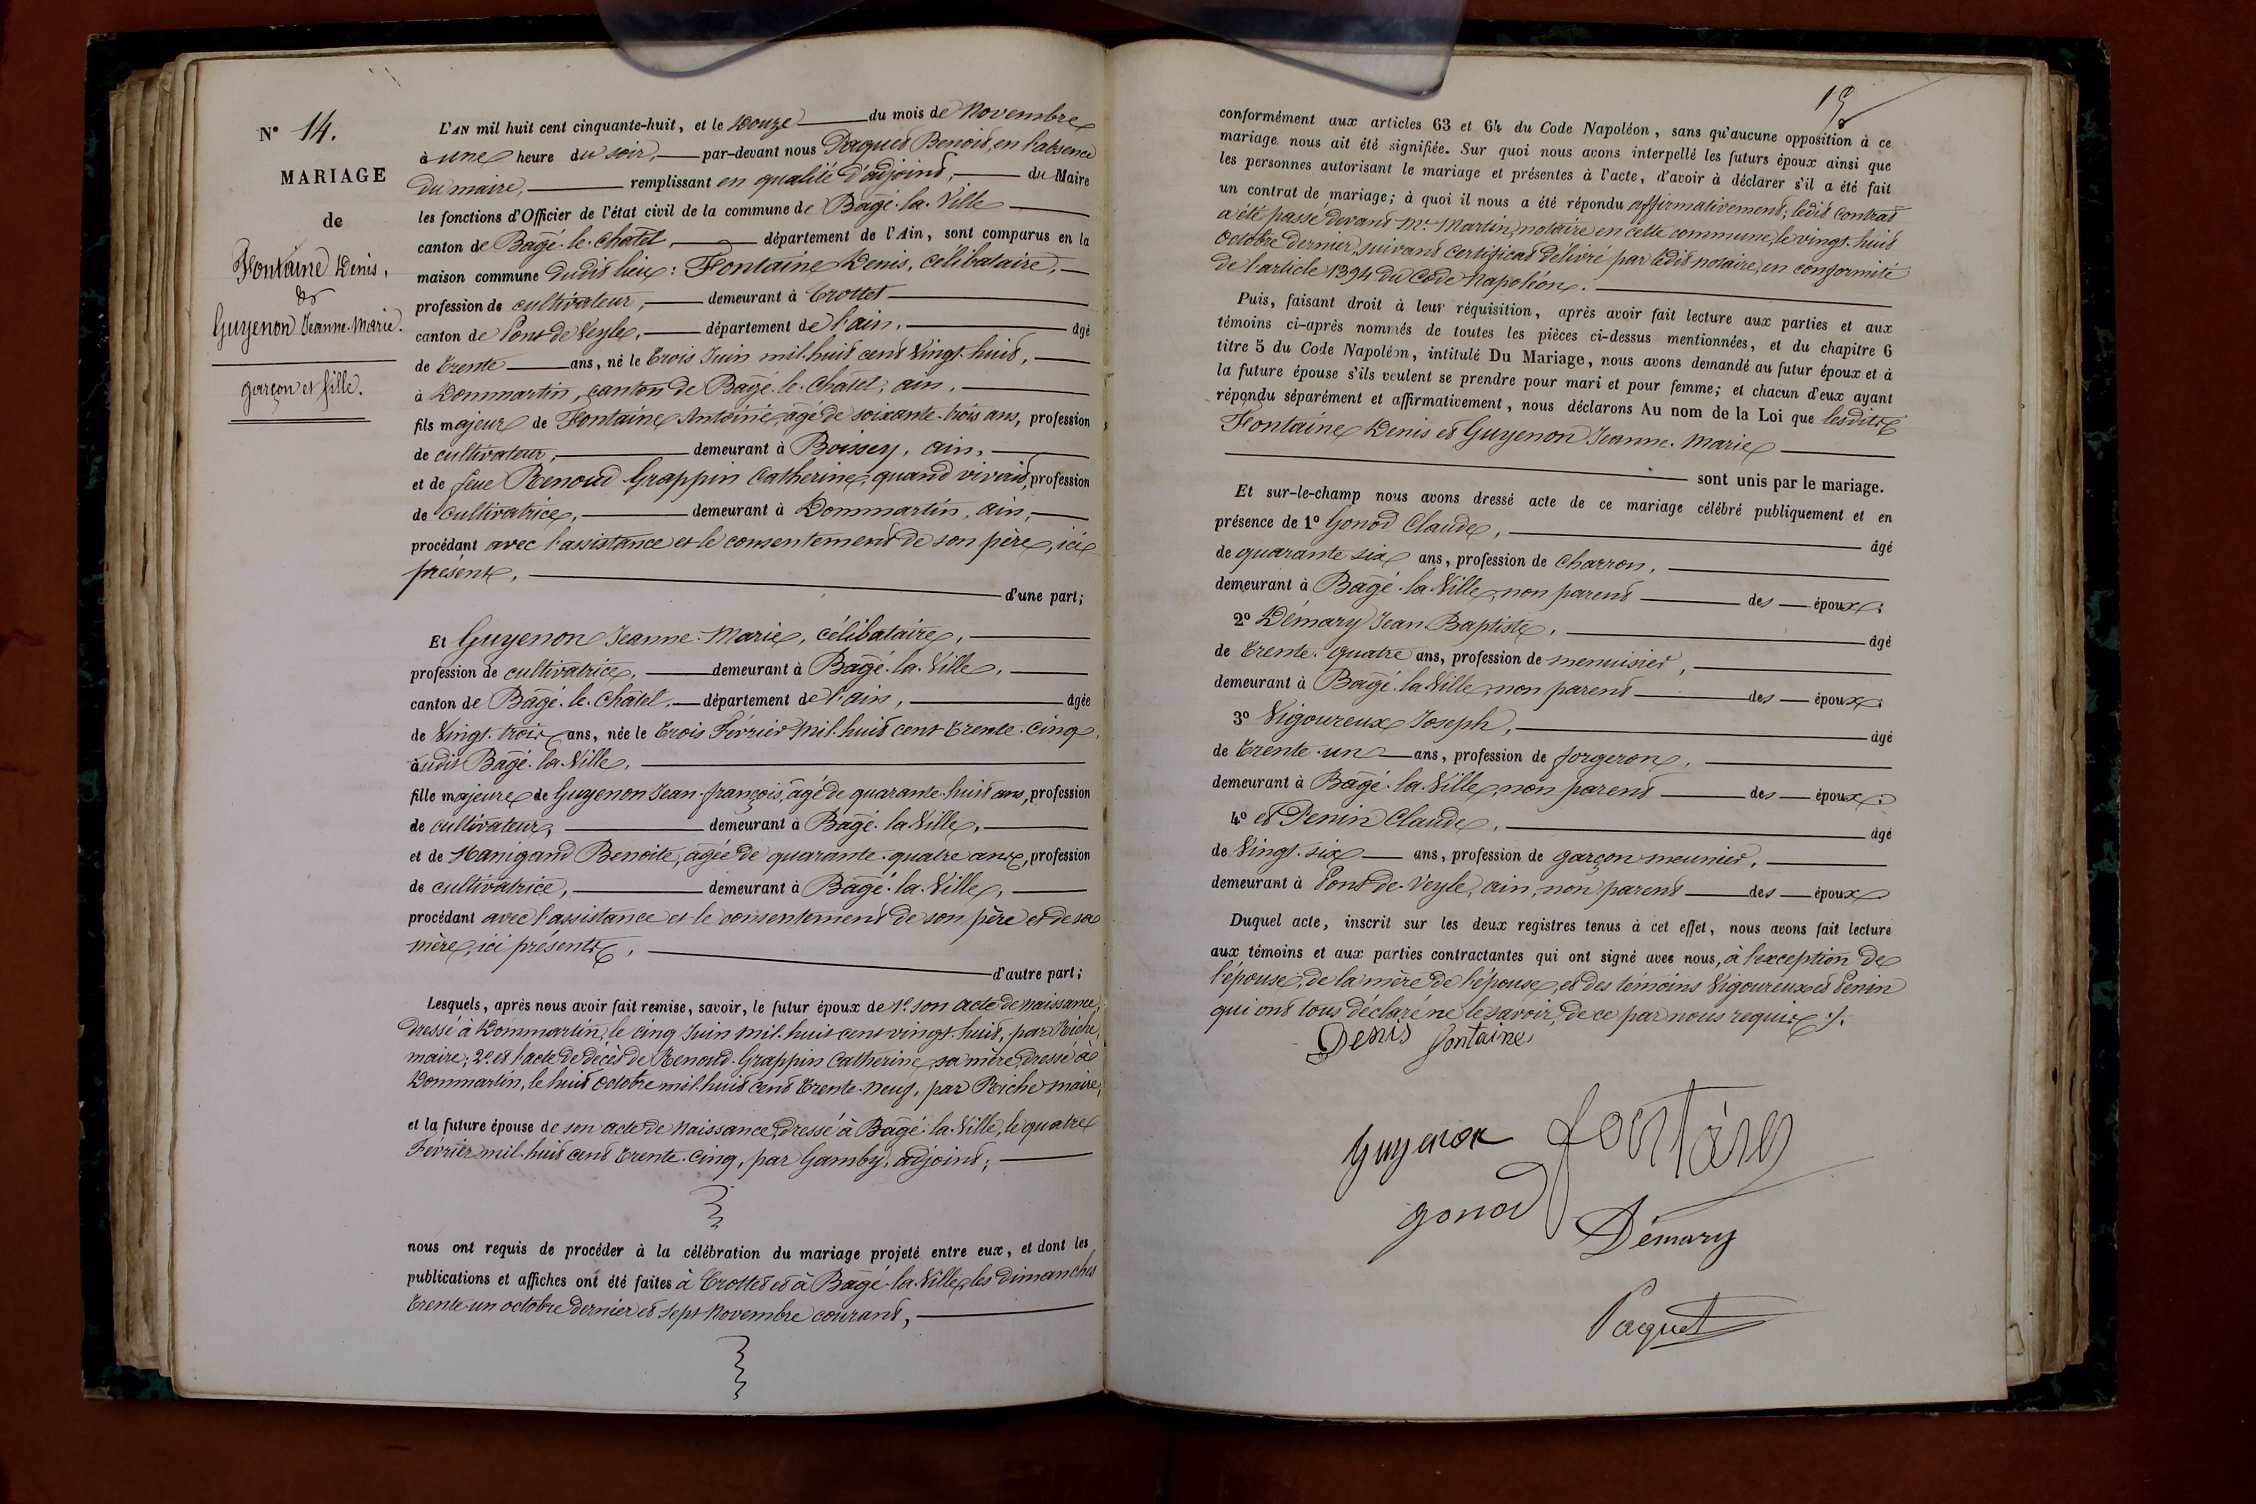 N° 14.
MARIAGE
de
Fontaine Denis,
et
Guyenon Jeanne-Marie.
garçon et fille.
L'AN mil huit cent cinquante-huit, et le Douze du mois de Novembre
à une heure du soir, par-devant nous Paquet Benoit, en l'absence
du maire, remplissant en qualité d'adjoint, du Maire
les fonctions d'Officier de l'état civil de la commune de Bâgé-la-Ville
canton de Bâgé-le-Châtel, département de l'Ain, sont comparus en la
maison commune dudit lieu : Fontaine Denis, célibataire,
profession de cultivateur, demeurant à Crottet
canton de Pont-de-Veyle, département de l'ain, âgé
de Trente ans, né le Trois Juin mil-huit cent vingt-huit,
à Dommartin, canton de Bâgé-le-Châtel, ain,
fils majeur de Fontaine Antoine, âgé de soixante-trois ans, profession
de cultivateur, demeurant à Boissey, ain,
et de feue Renoud-Grappin Catherine, quand vivait, profession
de cultivatrice, demeurant à Dommartin, ain,
procédant avec l'assistance et le consentement de son père, ici
présent, d'une part;
Et Guyenon Jeanne-Marie, célibataire,
profession de cultivatrice, demeurant à Bâgé-la-Ville,
canton de Bâgé-le-Châtel, département de l'ain, âgée
de Vingt-trois ans, née le Trois Février mil-huit cent trente-cinq
audit Bâgé-la-Ville,
fille majeure de Guyenon Jean-françois, âgé de quarante-huit ans, profession
de cultivateur, demeurant à Bâgé-la-Ville,
et de Manigand Benoite, âgée de quarante-quatre ans, profession
de cultivatrice, demeurant à Bâgé-la-Ville,
procédant avec l'assistance et le consentement de son père et de sa
mère, ici présents, d'autre part;
Lesquels, après nous avoir fait remise, savoir, le futur époux de 1° son acte de naissance,
dressé à Dommartin, le cinq Juin mil-huit-cent-vingt-huit, par Riche,
maire; 2° et l'acte de décès de Renoud-Grappin Catherine, sa mère, dressé à
Dommartin, le huit octobre mil-huit cent trente-neuf, par Riche maire,
et la future épouse de son acte de naissance, dressé à Bâgé-la-Ville, le quatre
Février mil-huit cent trente-cinq, par Gamby, adjoint;
nous ont requis de procéder à la célébration du mariage projeté entre eux, et dont les
publications et affiches ont été faites à Crottet et à Bâgé-la-Ville, les dimanches
trente un octobre dernier et sept Novembre courant,
conformément aux articles 63 et 64 du Code Napoléon, sans qu'aucune opposition à ce
mariage nous ait été signifiée. Sur quoi nous avons interpellé les futurs époux ainsi que
les personnes autorisant le mariage et présentes à l'acte, d'avoir à déclarer s'il a été fait
un contrat de mariage; à quoi il nous a été répondu affirmativement; ledit contrat
a été passé devant Me Martin, notaire en cette commune, le vingt-huit
octobre dernier, suivant certificat délivré par ledit notaire, en conformité
de l'article 1394 du Code Napoléon.
Puis, faisant droit à leur réquisition, après avoir fait lecture aux parties et aux
témoins ci-après nommés de toutes les pièces ci-dessus mentionnées, et du chapitre 6
titre 5 du Code Napoléon, intitulé Du Mariage, nous avons demandé au futur époux et à
la future épouse s'ils veulent se prendre pour mari et pour femme; et chacun d'eux ayant
répondu séparément et affirmativement, nous déclarons Au nom de la Loi que lesdits
Fontaine Denis et Guyenon Jeanne-Marie
sont unis par le mariage.
Et sur-le-champ nous avons dressé acte de ce mariage célébré publiquement et en
présence de 1° Gonod Claude, âgé
de quarante six ans, profession de charron,
demeurant à Bâgé-la-Ville, non parent des époux;
2° Démary Jean-Baptiste, âgé
de Trente-quatre ans, profession de menuisier,
demeurant à Bâgé-la-Ville, non parent des époux;
3° Vigoureux Joseph, âgé
de Trente-un ans, profession de forgeron,
demeurant à Bâgé-la-Ville, non parent des époux;
4° et Penin Claude, âgé
de Vingt-six ans, profession de garçon meunier,
demeurant à Pont-de-Veyle, ain, non parent des époux
Duquel acte, inscrit sur les deux registres tenus à cet effet, nous avons fait lecture
aux témoins et aux parties contractantes qui ont signé avec nous, à l'exception de
l'épouse, de la mère de l'épouse, et des témoins Vigoureux et Penin
qui ont tous déclaré ne le savoir, de ce par nous requis ./.
Denis fontaine
Guyenon fontaine
gonod
Démary
Paquet